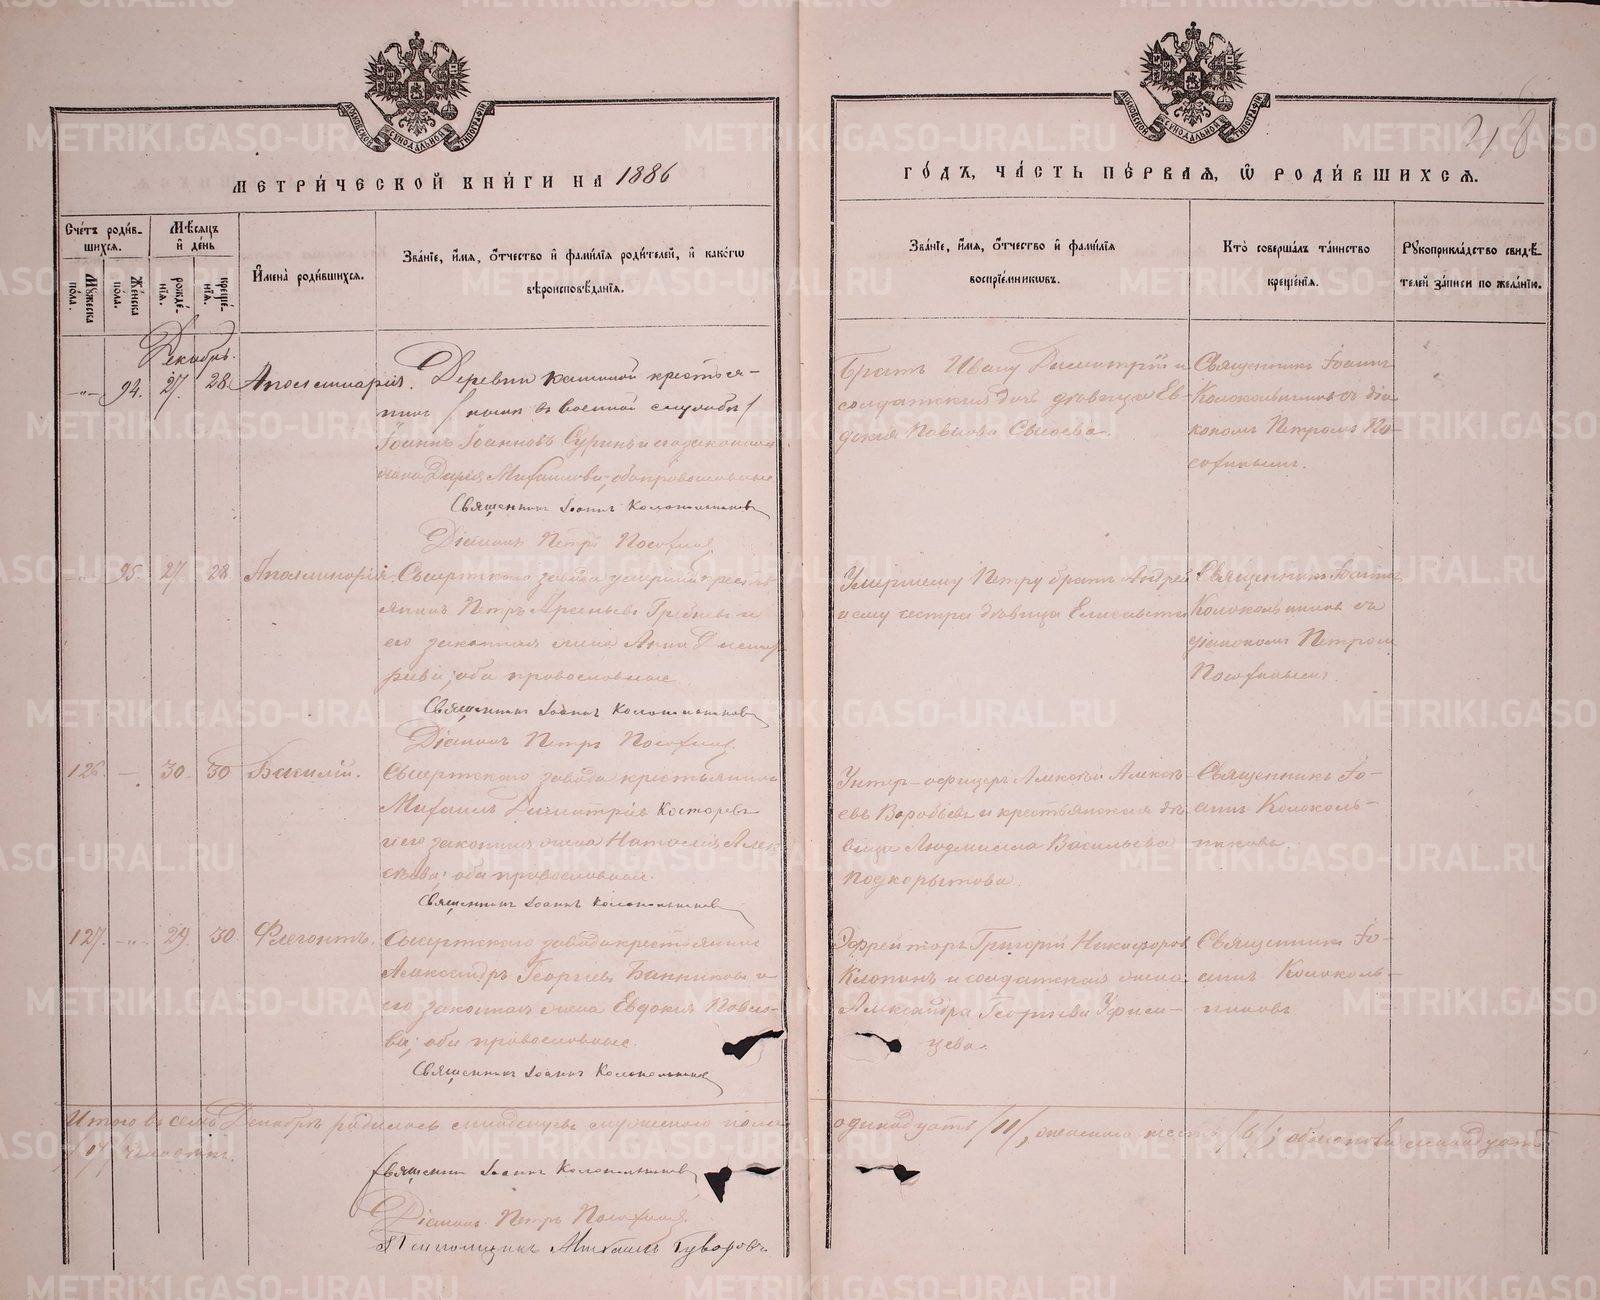 МЕТРИ́ЧЕСКОЙ КНИ́ГИ НА 1886
ГО́ДЪ, ЧА́СТЬ ПЕ́РВАЯ, Ѽ РОДИ́ВШИХСЯ.
218
Сче́тъ роди́в-
шихся.
Му́жеска по́ла.
Же́нска по́ла.
Мѣ́сяцъ и де́нь
рожде́нія.
креще́нія.
И҆мена̀ роди́вшихся.
Зва́ніе, и҆́мя, ѻ҆́тчество и҆ фами́лїѧ роди́телей, и҆ како́гѡ
вѣроисповѣ́данїѧ.
Зва́нїе, и҆́мѧ, ѻ҆́тчество и҆ фами́лїѧ
воспрїе́мникѡвъ.
Кто̀ соверша́лъ та́инство
креще́нїѧ.
Рꙋкоприкла́дство свидѣ́-
телей за́писи по жела́нїю.
Декабрь.
94. 27. 28. Апполинарія. Деревни Каменной крестья-
нинъ /нынѣ въ военной службѣ/
Іоаннъ Іоанновъ Суринъ и его законная
жена Дарья Михаилова, оба православные
Священникъ Іоаннъ Колокольниковъ
Діаконъ Петръ
Братъ Ивану Димитрій и
солдатская дочь дѣвица Ев-
докія Павлова Сысоева.
Священникъ Іоаннъ
Колокольниковъ съ діа-
кономъ Петромъ
95. 27. 28. Апполинарія. Сысертскаго завода умершій кресть-
янинъ Петръ Арсеньевъ и
его законная жена Анна Димит-
ріева; оба православные
Священникъ Іоаннъ Колокольниковъ
Діаконъ Петръ
Умершему Петру братъ Андрей
и ему сестра дѣвица Елисавета
Священникъ Іоаннъ
Колокольниковъ съ
діакономъ Петромъ
126. 30. 30. Василій. Сысертскаго завода крестьянинъ
Михаилъ Димитріевъ Костаревъ
и его законная жена Наталія Алек-
сѣева; оба православные.
Священникъ Іоаннъ Колокольниковъ
Унтер-офицеръ Алексѣй Алексѣ-
евъ Воробьевъ и крестьянская дѣ-
вица Людмилла Васильева
Подкорытова.
Священникъ Іо-
аннъ Колоколь-
никовъ.
127. 29. 30. Флегонтъ. Сысертскаго завода крестьянинъ
Александръ Георгіевъ Банниковъ и
его законная жена Евдокія Павло-
ва; оба православные.
Священникъ Іоаннъ Колокольниковъ
Эфрейторъ Григорій Никифоровъ
Клопинъ и солдатская жена
Александра Георгіева
цева.
Священникъ Іо-
аннъ Колоколь-
никовъ
Итого въ семъ Декабрѣ родилось младенцевъ мужескаго пола
одинадцать /11/, женскаго шесть /6/; обоего семнадцать
/17/ человѣкъ.
Священникъ Іоаннъ Колокольниковъ
Діаконъ Петръ
Псаломщикъ Михаилъ
METRIKI.GASO-URAL.RU